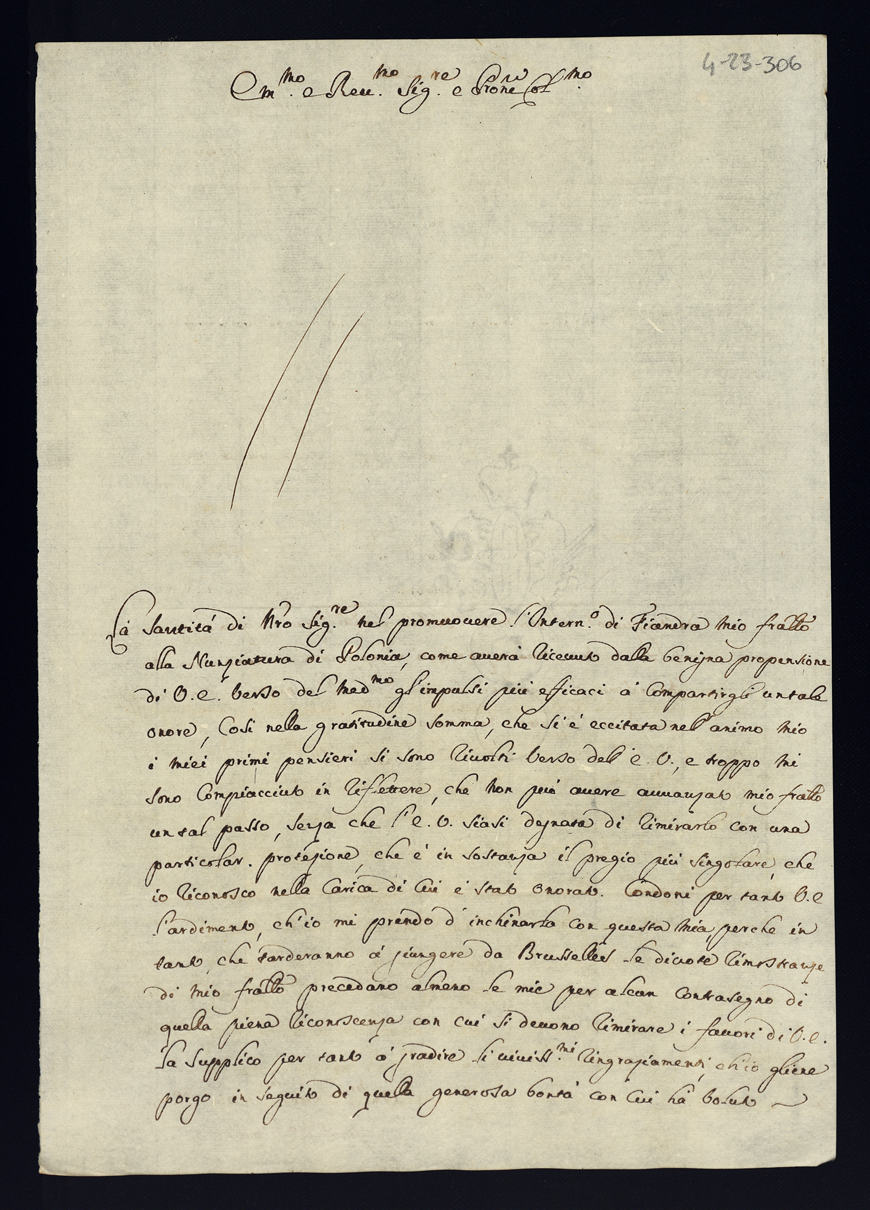 4-23-306
Em.mo e Reu.mo Sig.re e Prone Col.mo
La Santità di Nro Sig.re nel promuouere l'Intern.o di Fiandra mio fratello
alla Nunziatura di Polonia, come auerà riceuuto dalla benigna propensione
di V. E. verso del med.mo gl'impulsi più efficaci à compartirgli un tale
onore, Così nella gratitudine somma, che si è eccitata nell'animo mio
i miei primi pensieri si sono riuolti verso dell'E. V., e troppo mi
sono compiacciuto in riflettere, che non può auere auuanzato mio fratello
un tal passo, senza che l'E. V. siasi degnata di rimirarlo con una
particolar. protezione, che è in sostanza il pregio più singolare, che
io riconosco nella Carica di Cui è stato onorato. Condoni per tanto V. E
l'ardimento, ch'io mi prendo d'inchinarla con questa mia, perche in
tanto, che tarderanno à giungere da Brusselles le diuote rimostranze
di mio fratello precedano almeno le mie per alcun Contrasegno di
quella piena riconoscenza con cui si deuono rimirare i fauori di V. E.
la supplico per tanto à gradire li viuiss.mi ringraziamenti, ch'io gliene
porgo in seguito di quella generosa bontà con Cui hà voluto